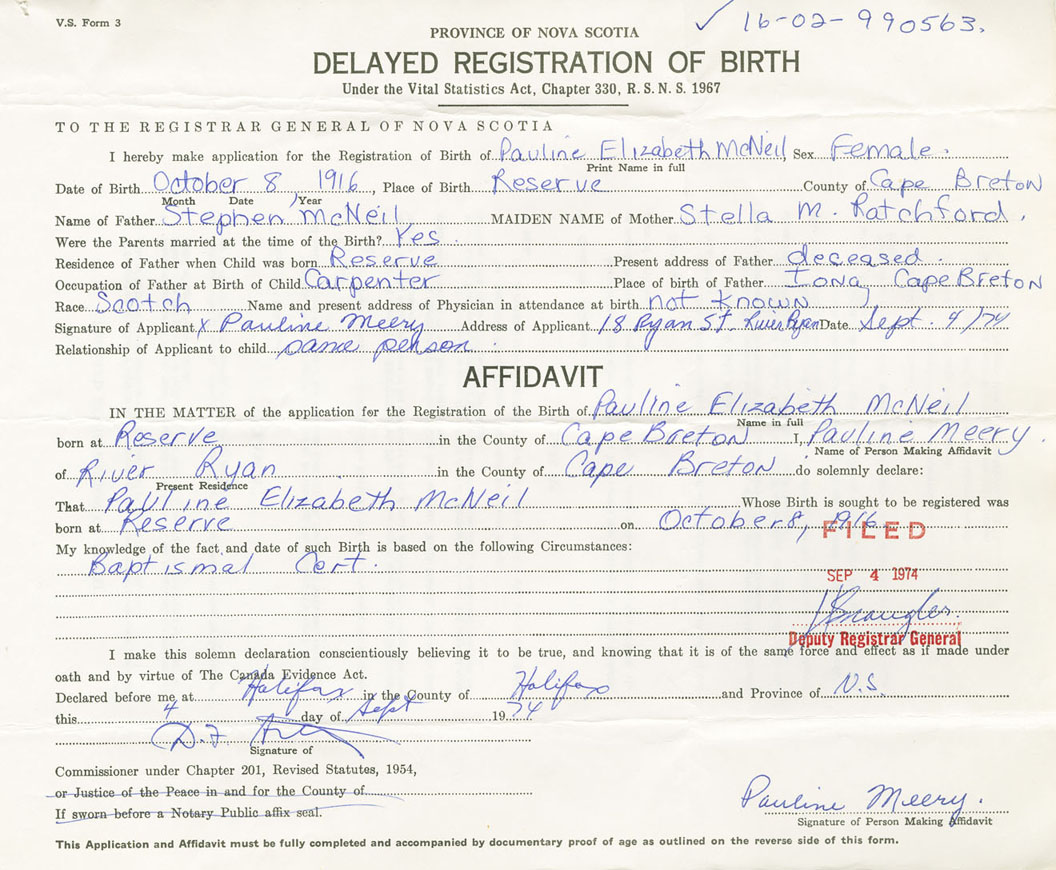 V.S. Form 3
✓ 16-02-990563.
PROVINCE OF NOVA SCOTIA
DELAYED REGISTRATION OF BIRTH
Under the Vital Statistics Act, Chapter 330, R. S. N. S. 1967
TO THE REGISTRAR GENERAL OF NOVA SCOTIA
I hereby make application for the Registration of Birth of Pauline Elizabeth McNeil, Sex Female.
Print Name in full
Date of Birth October 8, 1916, Place of Birth Reserve County of Cape Breton
Month Date Year
Name of Father Stephen McNeil MAIDEN NAME of Mother Stella M. Ratchford.
Were the Parents married at the time of the Birth? Yes.
Residence of Father when Child was born Reserve Present address of Father deceased.
Occupation of Father at Birth of Child Carpenter Place of birth of Father Iona, Cape Breton
Race Scotch Name and present address of Physician in attendance at birth not known
Signature of Applicant X Pauline Meery Address of Applicant 18 Ryan St. River Ryan Date Sept. 4/74
Relationship of Applicant to child same person.
AFFIDAVIT
IN THE MATTER of the application for the Registration of the Birth of Pauline Elizabeth McNeil
Name in full
born at Reserve in the County of Cape Breton I, Pauline Meery.
Name of Person Making Affidavit
of River Ryan in the County of Cape Breton do solemnly declare:
Present Residence
That Pauline Elizabeth McNeil Whose Birth is sought to be registered was
born at Reserve on October 8, 1916
FILED
My knowledge of the fact and date of such Birth is based on the following Circumstances:
Baptismal Cert.
SEP 4 1974
Deputy Registrar General
I make this solemn declaration conscientiously believing it to be true, and knowing that it is of the same force and effect as if made under
oath and by virtue of The Canada Evidence Act.
Declared before me at Halifax in the County of Halifax and Province of N.S.
this 4 day of Sept 1974
D.F.
Signature of
Commissioner under Chapter 201, Revised Statutes, 1954,
or Justice of the Peace in and for the County of
If sworn before a Notary Public affix seal.
Pauline Meery.
Signature of Person Making Affidavit
This Application and Affidavit must be fully completed and accompanied by documentary proof of age as outlined on the reverse side of this form.